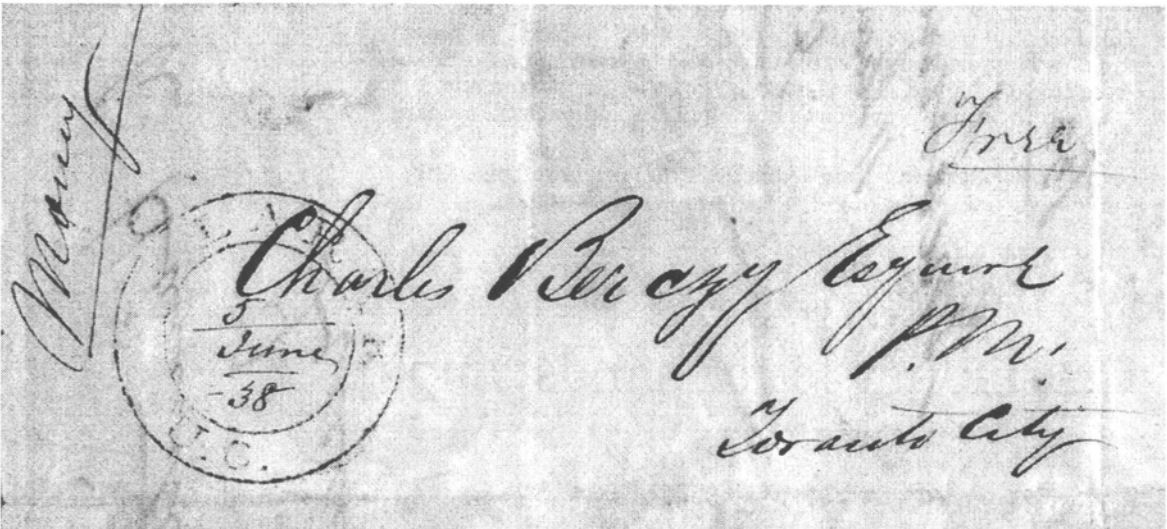 Money
Free
Charles Berczy Esquire
P.M.
Toronto City
5
June
-38
U.C.